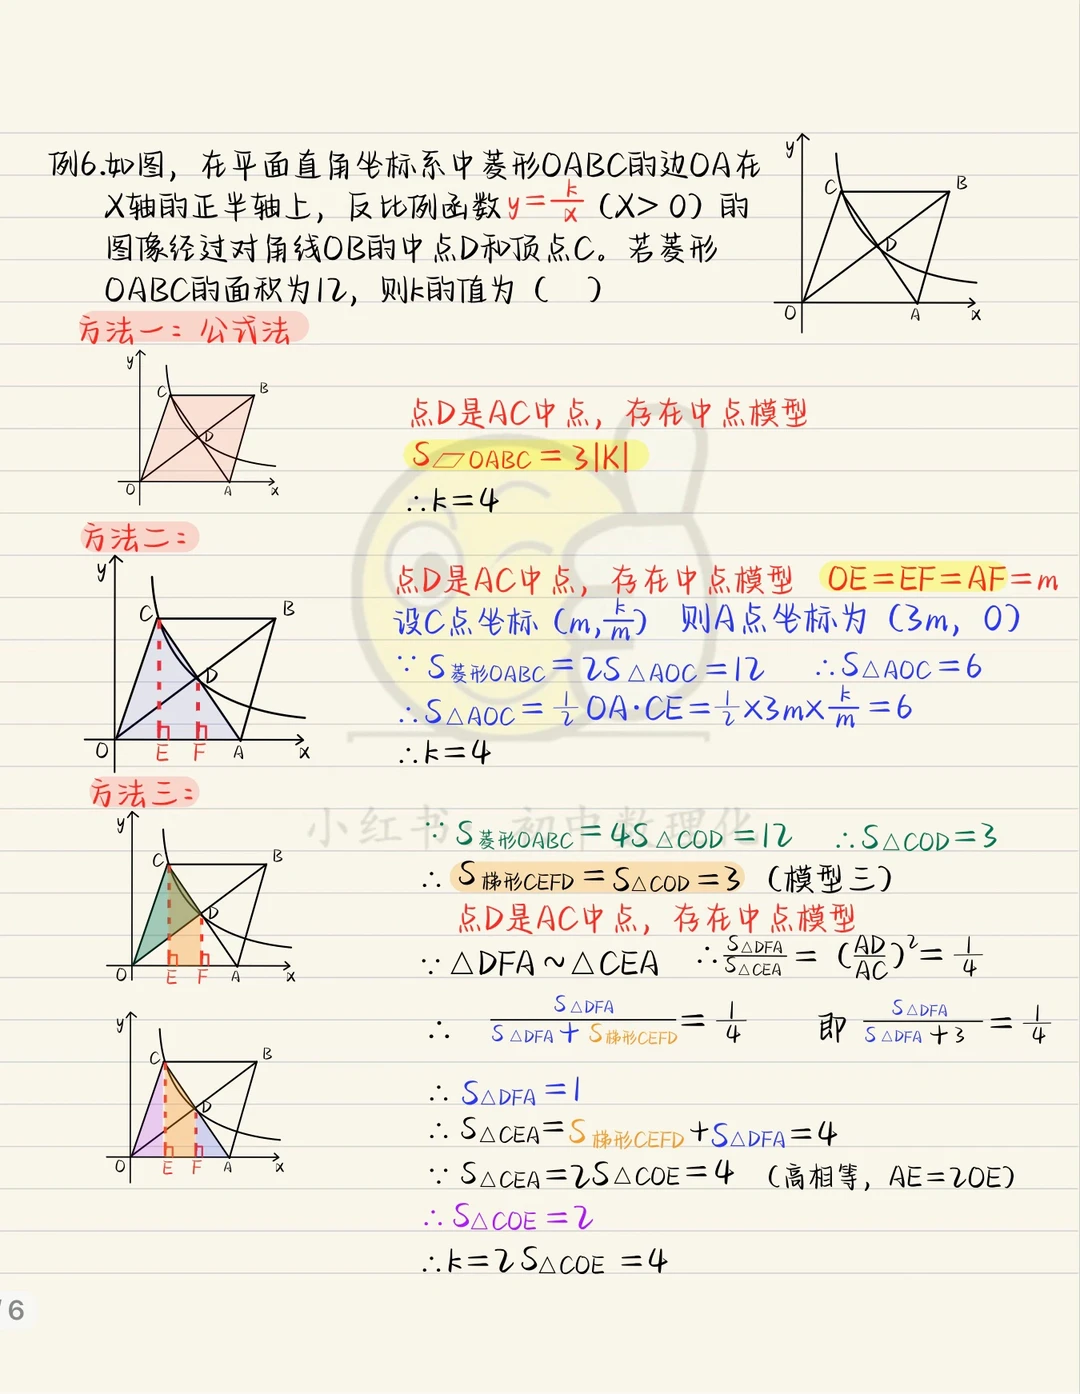 例6.如图，在平面直角坐标系中菱形OABC的边OA在
X轴的正半轴上，反比例函数y=k/x（X>0）的
图像经过对角线OB的中点D和顶点C。若菱形
OABC的面积为12，则k的值为（ ）
y
C
B
D
O
A
x
方法一：公式法
y
C
B
D
O
A
x
点D是AC中点，存在中点模型
S▱OABC=3|K|
∴k=4
方法二：
y
C
B
D
O
E
F
A
x
点D是AC中点，存在中点模型 OE=EF=AF=m
设C点坐标（m,k/m） 则A点坐标为（3m，0）
∵S菱形OABC=2S△AOC=12 ∴S△AOC=6
∴S△AOC=1/2OA·CE=1/2×3m×k/m=6
∴k=4
方法三：
y
C
B
D
O
E
F
A
x
小红书：初中数理化
∵S菱形OABC=4S△COD=12 ∴S△COD=3
∴S梯形CEFD=S△COD=3（模型三）
点D是AC中点，存在中点模型
∵△DFA~△CEA ∴S△DFA/S△CEA=(AD/AC)²=1/4
∴ S△DFA/(S△DFA+S梯形CEFD)=1/4 即 S△DFA/(S△DFA+3)=1/4
y
C
B
D
O
E
F
A
x
∴S△DFA=1
∴S△CEA=S梯形CEFD+S△DFA=4
∵S△CEA=2S△COE=4（高相等，AE=2OE）
∴S△COE=2
∴k=2S△COE=4
/6